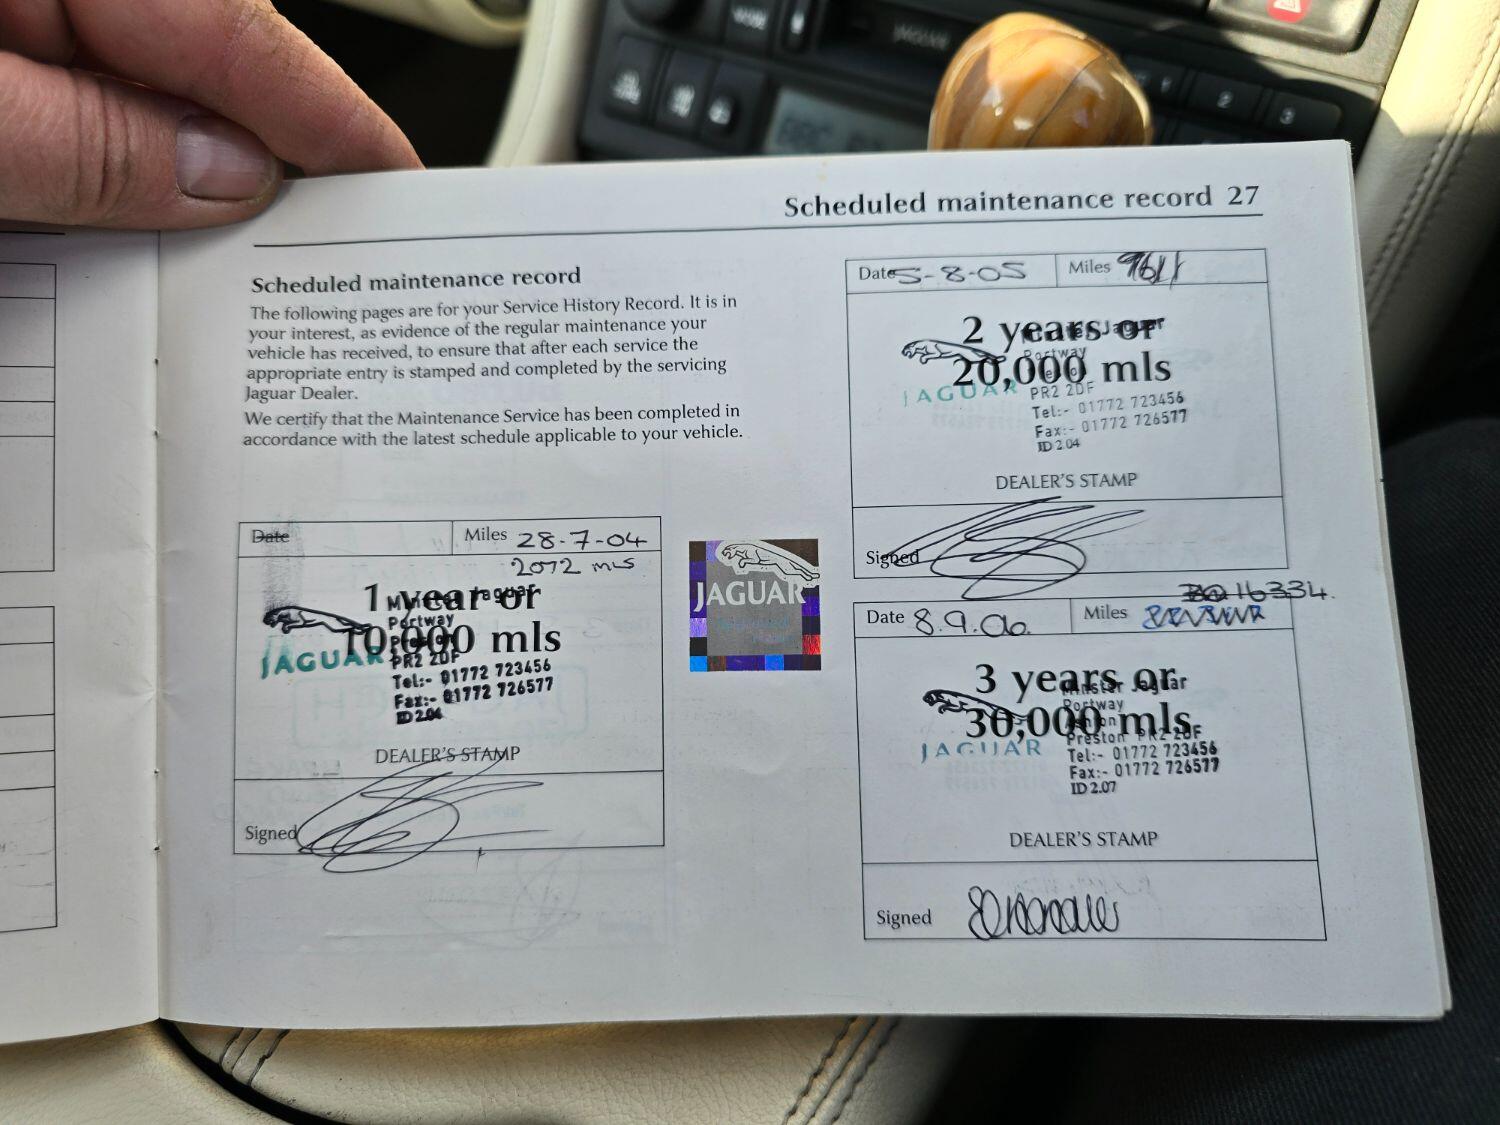 JAGUAR
1
2
3
Scheduled maintenance record 27
Scheduled maintenance record
The following pages are for your Service History Record. It is in
your interest, as evidence of the regular maintenance your
vehicle has received, to ensure that after each service the
appropriate entry is stamped and completed by the servicing
Jaguar Dealer.
We certify that the Maintenance Service has been completed in
accordance with the latest schedule applicable to your vehicle.
Date
Miles 28-7-04
2072 mls
1 year or
10,000 mls
Minster Jaguar
Portway
Preston
PR2 2DF
Tel:- 01772 723456
Fax:- 01772 726577
ID 2.04
JAGUAR
DEALER'S STAMP
Signed
JAGUAR
Date 5-8-05
Miles 9611
2 years or
20,000 mls
Minster Jaguar
Portway
PR2 2DF
Tel:- 01772 723456
Fax:- 01772 726577
ID 2.04
JAGUAR
DEALER'S STAMP
Signed
16334.
Date 8.9.06.
Miles
3 years or
30,000 mls
Minster Jaguar
Portway
Ashton
Preston PR2 2DF
Tel:- 01772 723456
Fax:- 01772 726577
ID 2.07
JAGUAR
DEALER'S STAMP
Signed